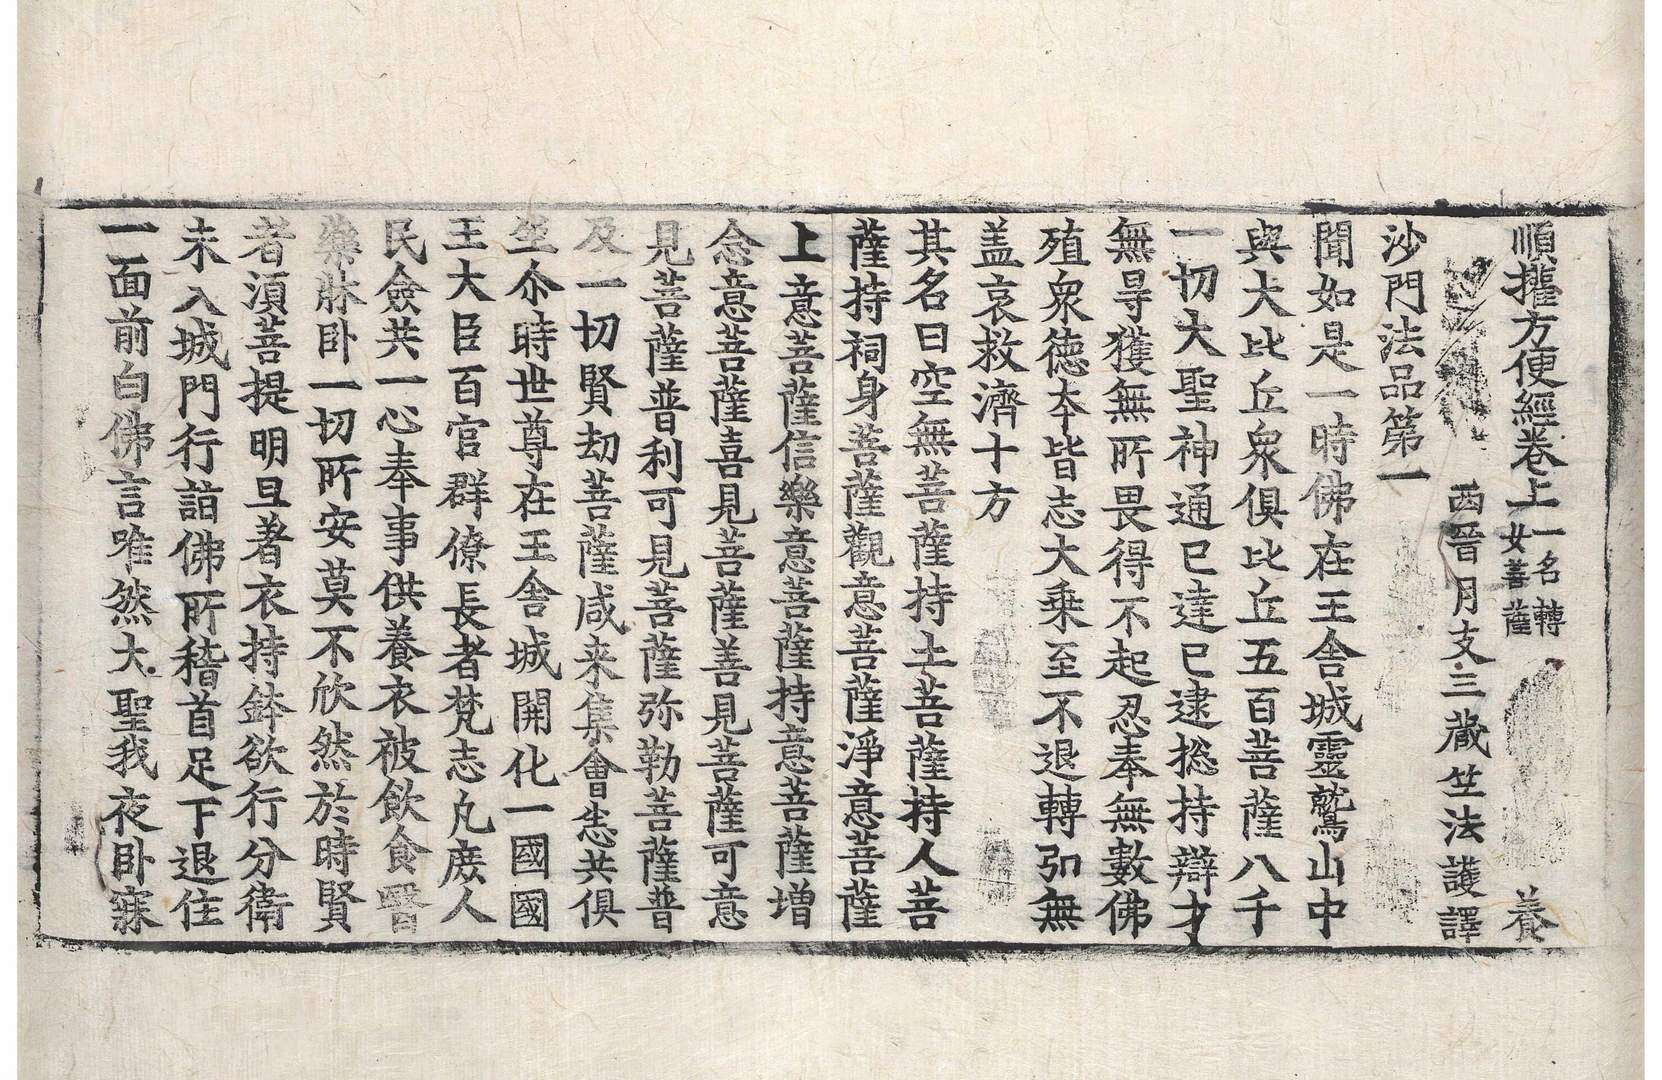 順權方便經卷上 一名轉女菩薩 養
西晉月支三藏竺法護譯
沙門法品第一
聞如是一時佛在王舍城靈鷲山中
與大比丘衆俱比丘五百菩薩八千
一切大聖神通已達已逮揔持辯才
無㝵獲無所畏得不起忍奉無數佛
殖衆德本皆志大乘至不退轉弘無
盖哀救濟十方
其名曰空無菩薩持土菩薩持人菩
薩持祠身菩薩觀意菩薩淨意菩薩
上意菩薩信樂意菩薩持意菩薩增
念意菩薩喜見菩薩善見菩薩可意
見菩薩普利可見菩薩弥勒菩薩普
及一切賢劫菩薩咸来集會悉共俱
坐尒時世尊在王舍城開化一國國
王大臣百官群僚長者梵志凡庶人
民僉共一心奉事供養衣被飲食醫
藥牀卧一切所安莫不欣然於時賢
者湏菩提明旦著衣持鉢欲行分衛
未入城門行詣佛所稽首足下退住
一面前白佛言唯然大聖我夜卧寐